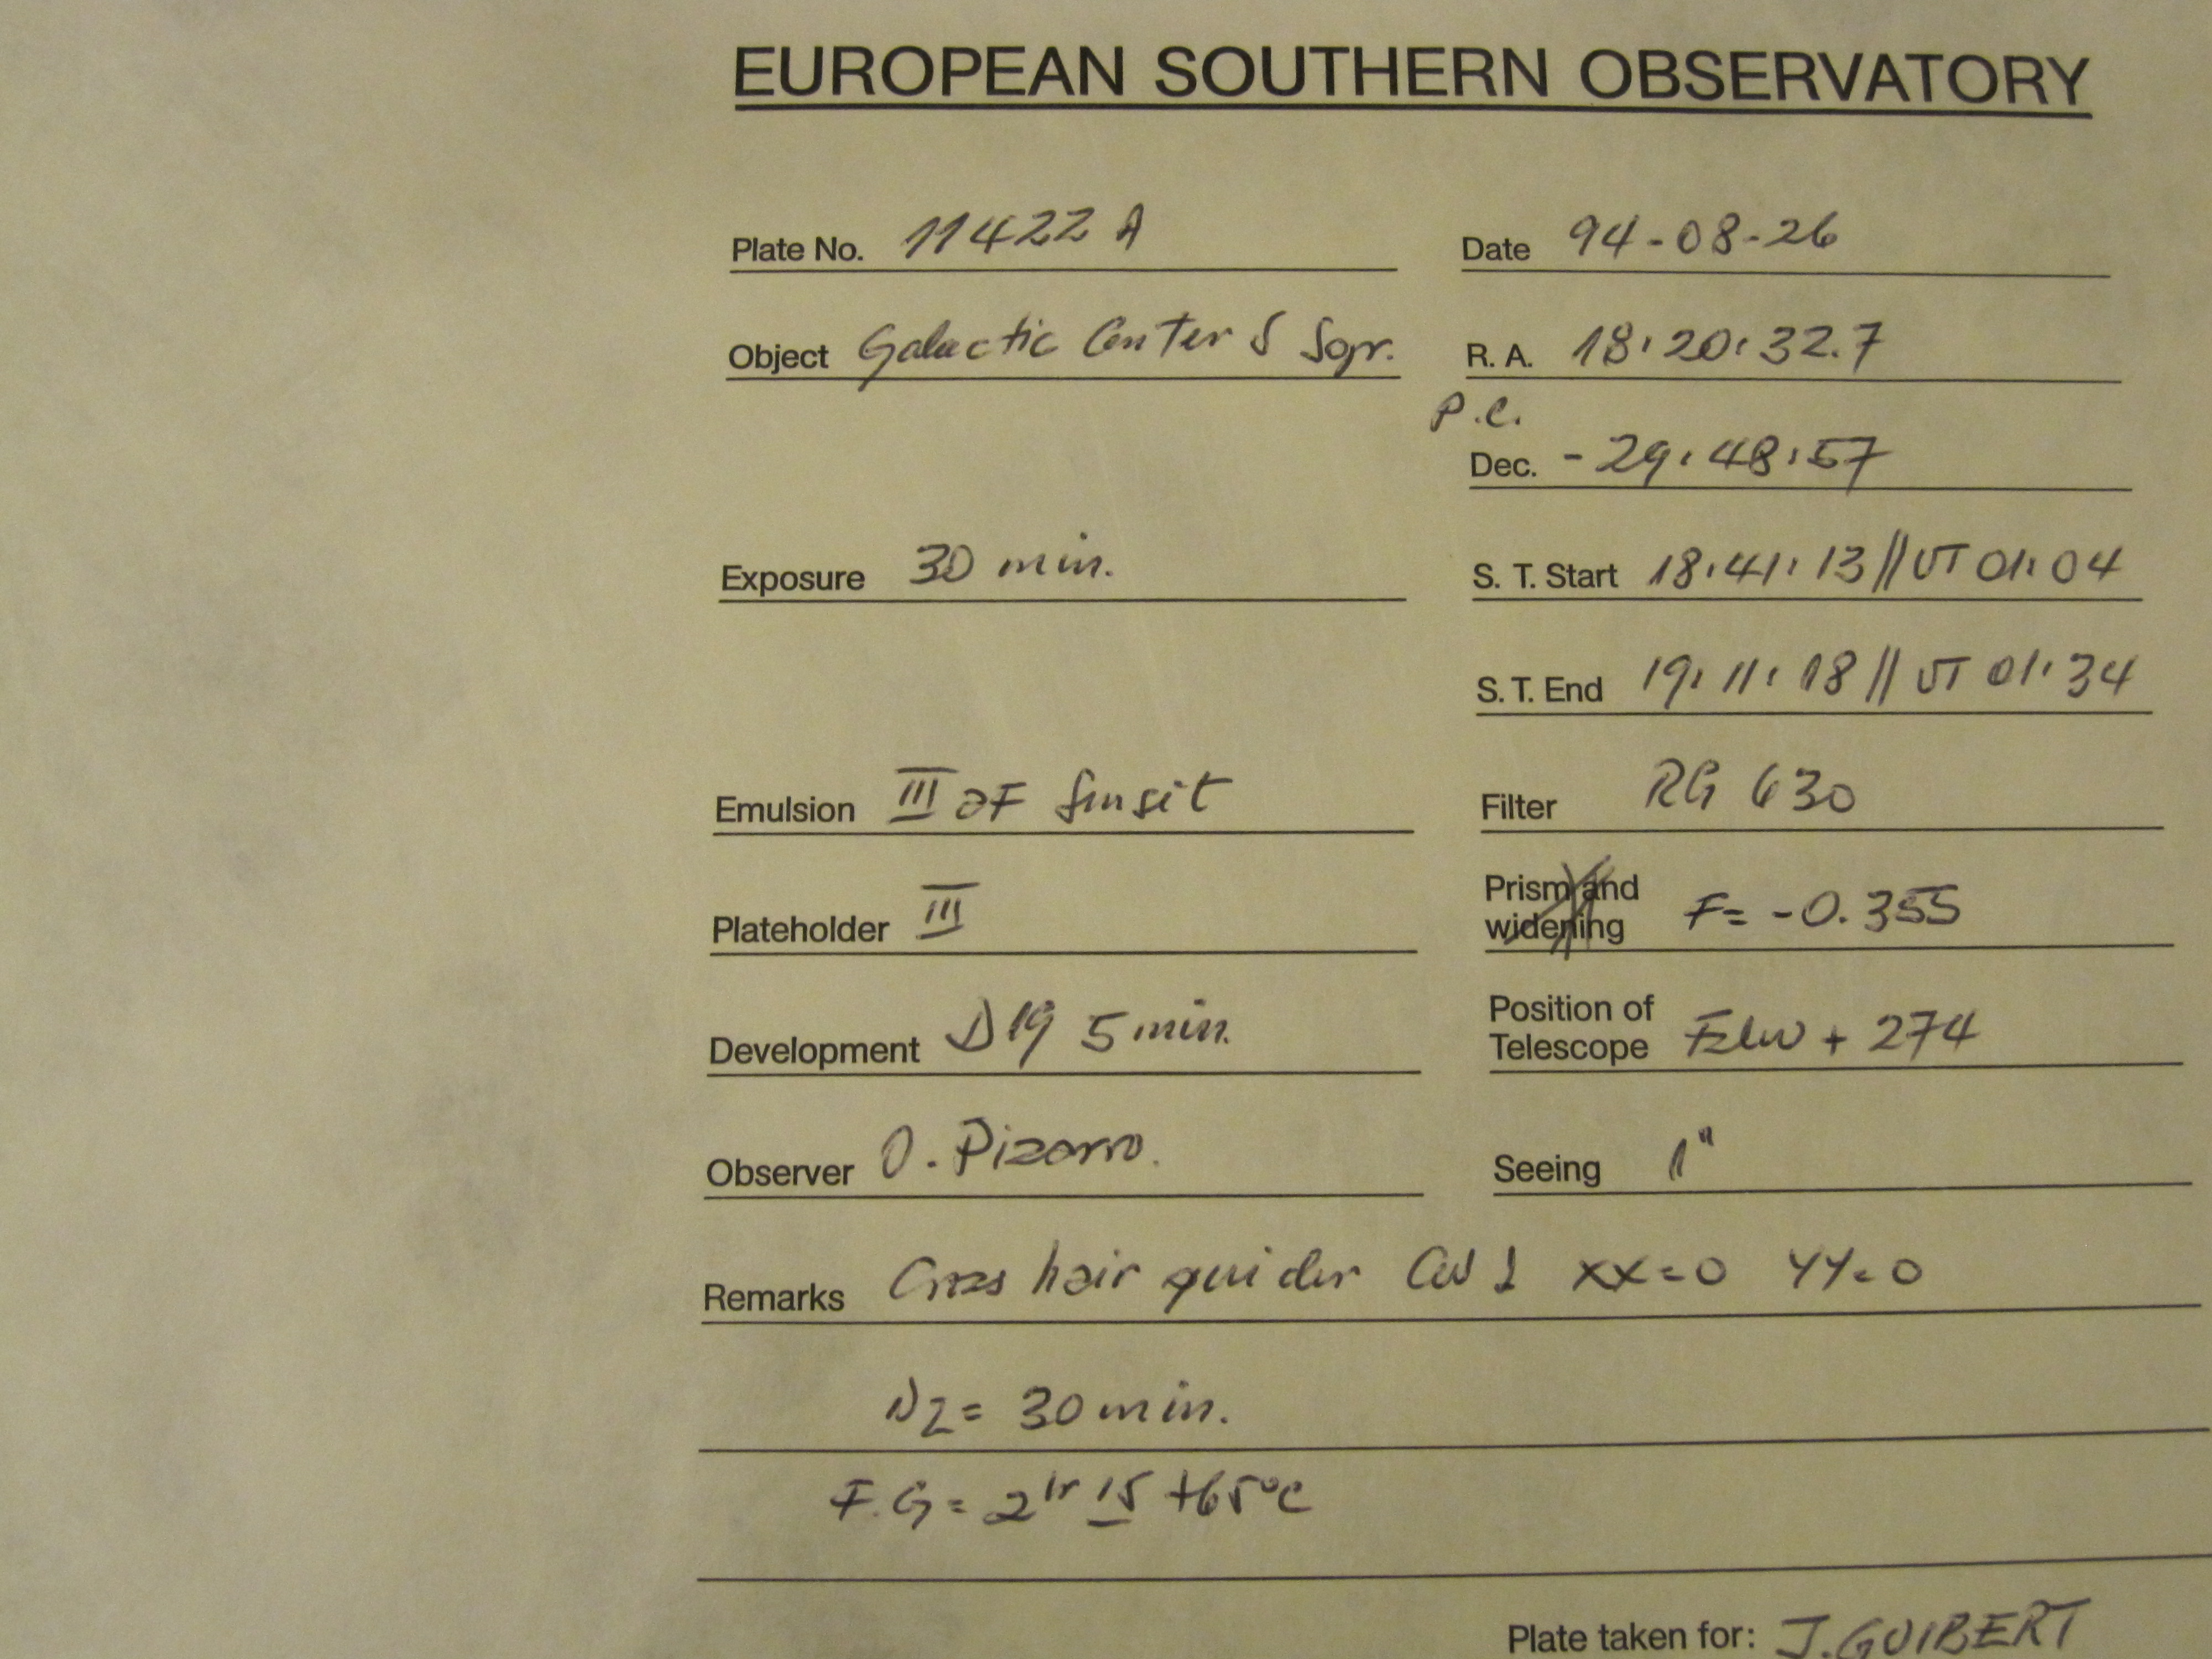 EUROPEAN SOUTHERN OBSERVATORY
Plate No. 11422 A Date 94-08-26
Object Galactic Center S R. A. 18:20:32.7
P.C.
Dec. -29:48:57
Exposure 30 min. S. T. Start 18:41:13 // UT 01:04
S. T. End 19:11:18 // UT 01:34
Emulsion III aF Filter RG 630
Prism and
Plateholder III widening F= -0.355
Position of
Development D19 5 min. Telescope + 274
Observer O. Pizarro. Seeing 1"
Remarks Cross hair guider XX=0 YY=0
N2= 30 min.
F.G= 2hr 15 +65°C
Plate taken for: J. GUIBERT